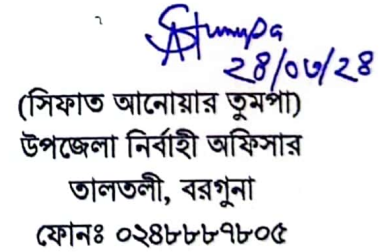 Tumpa
২৪/০৩/২৪
(সিফাত আনোয়ার তুমপা)
উপজেলা নির্বাহী অফিসার
তালতলী, বরগুনা
ফোনঃ ০২৪৮৮৮৭৮০৫